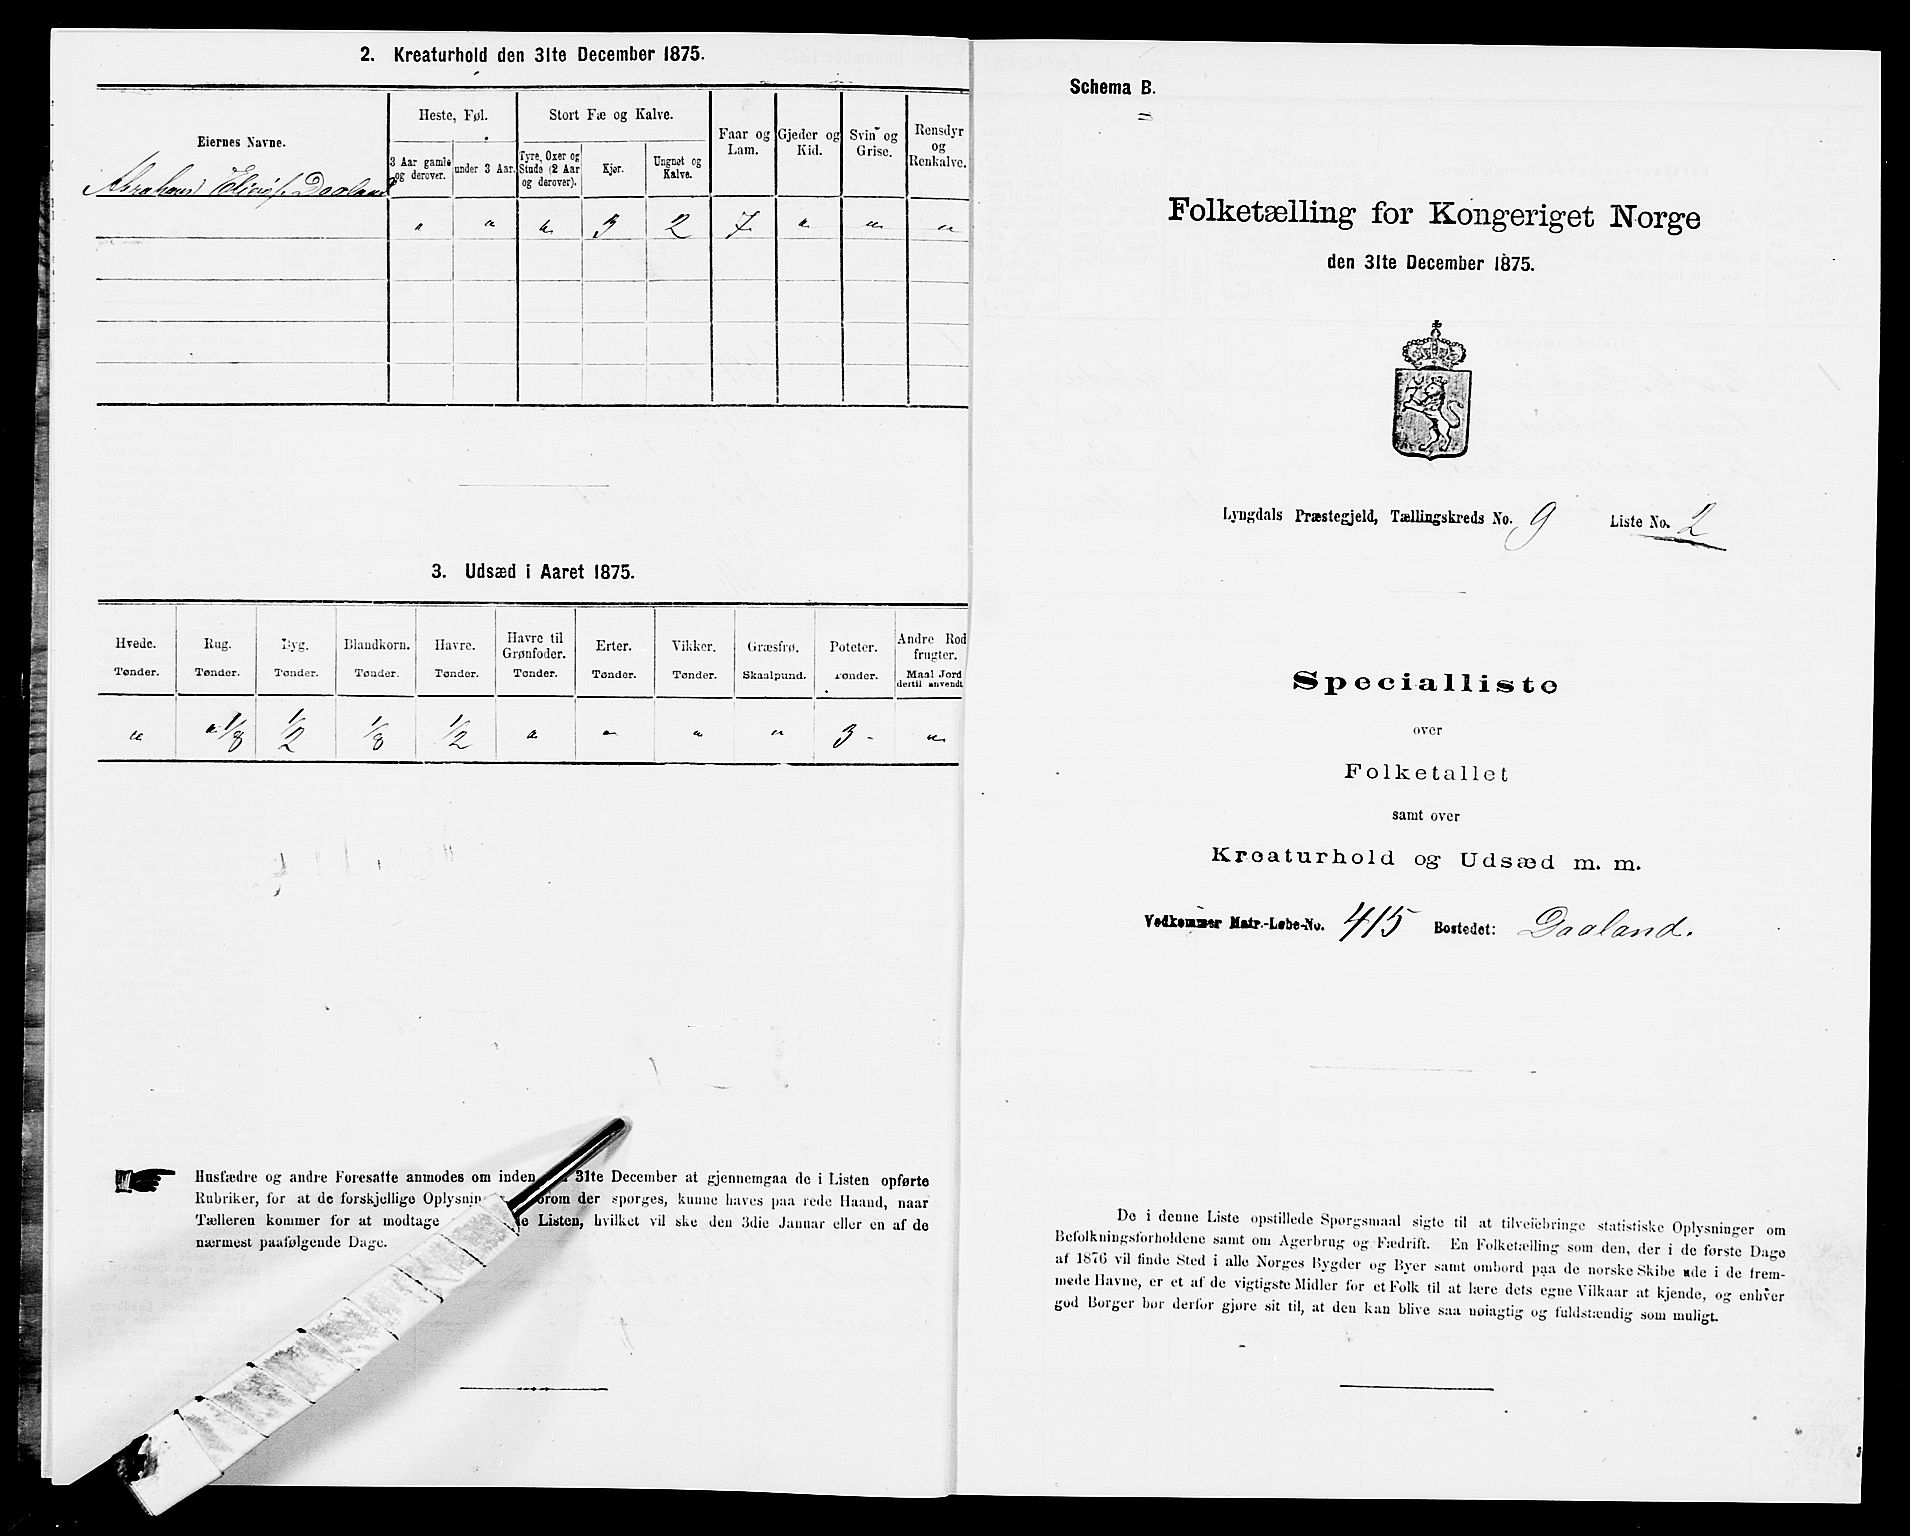 2. Kreaturhold den 31te December 1875.
Eiernes Navne.
Heste, Føl.
Stort Fæ og Kalve.
Faar og Lam.
Gjeder og Kid.
Svin og Grise.
Rensdyr og Renkalve.
3 Aar gamle og derover.
under 3 Aar.
Tyre, Oxer og Stude (2 Aar og derover).
Kjør.
Ungnøt og Kalve.
Abraham Daaland
" " " 3 2 7 " " "
3. Udsæd i Aaret 1875.
Hvede. Rug. Byg. Blandkorn. Havre. Havre til Grønfoder. Erter. Vikker. Græsfrø. Poteter. Andre Rodfrugter.
Tønder. Tønder. Tønder. Tønder. Tønder. Tønder. Tønder. Tønder. Skaalpund. Tønder. Maal Jord dertil anvendt
" " 1/8 1/2 1/8 1/2 " " " " 3 - "
Husfædre og andre Foresatte anmodes om inden 31te December at gjennemgaa de i Listen opførte
Rubriker, for at de forskjellige Oplysnin orom der spørges, kunne haves paa rede Haand, naar
Tælleren kommer for at modtage e Listen, hvilket vil ske den 3die Januar eller en af de
nærmest paafølgende Dage.
Schema B.
Folketælling for Kongeriget Norge
den 31te December 1875.
Lyngdals Præstegjeld, Tællingskreds No. 9 Liste No. 2
Specialliste
over
Folketallet
samt over
Kreaturhold og Udsæd m. m.
Vedkommer Matr.-Løbe-No. 415 Bostedet: Daaland.
De i denne Liste opstillede Spørgsmaal sigte til at tilveiebringe statistiske Oplysninger om
Befolkningsforholdene samt om Agerbrug og Fædrift. En Folketælling som den, der i de første Dage
af 1876 vil finde Sted i alle Norges Bygder og Byer samt ombord paa de norske Skibe ude i de frem-
mede Havne, er et af de vigtigste Midler for et Folk til at lære dets egne Vilkaar at kjende, og enhver
god Borger bør derfor gjøre sit til, at den kan blive saa nøiagtig og fuldstændig som muligt.